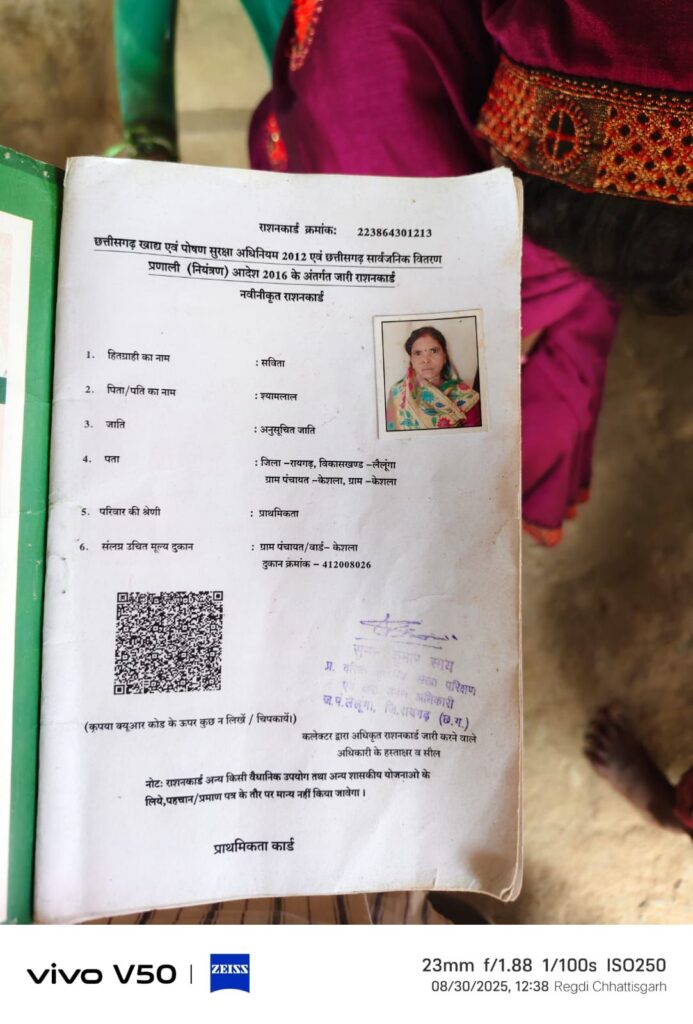 राशनकार्ड क्रमांक: 223864301213
छत्तीसगढ़ खाद्य एवं पोषण सुरक्षा अधिनियम 2012 एवं छत्तीसगढ़ सार्वजनिक वितरण
प्रणाली (नियंत्रण) आदेश 2016 के अंतर्गत जारी राशनकार्ड
नवीनीकृत राशनकार्ड
1. हितग्राही का नाम : सविता
2. पिता/पति का नाम : श्यामलाल
3. जाति : अनुसूचित जाति
4. पता : जिला –रायगढ़, विकासखण्ड –लैलूंगा
ग्राम पंचायत –केशला, ग्राम –केशला
5. परिवार की श्रेणी : प्राथमिकता
6. संलग्न उचित मूल्य दुकान : ग्राम पंचायत/वार्ड– केशला
दुकान क्रमांक – 412008026
साय
प्र. परिक्षण
अधिकारी
ज.पं.लैलूंगा, जि.रायगढ़ (छ.ग.)
(कृपया क्यूआर कोड के ऊपर कुछ न लिखें / चिपकायें।)
कलेक्टर द्वारा अधिकृत राशनकार्ड जारी करने वाले
अधिकारी के हस्ताक्षर व सील
नोट: राशनकार्ड अन्य किसी वैधानिक उपयोग तथा अन्य शासकीय योजनाओ के
लिये,पहचान/प्रमाण पत्र के तौर पर मान्य नहीं किया जावेगा।
प्राथमिकता कार्ड
vivo V50 | ZEISS
23mm f/1.88 1/100s ISO250
08/30/2025, 12:38 Regdi Chhattisgarh